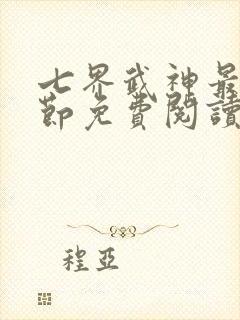 七界武神最
節免費閱讀
程亞